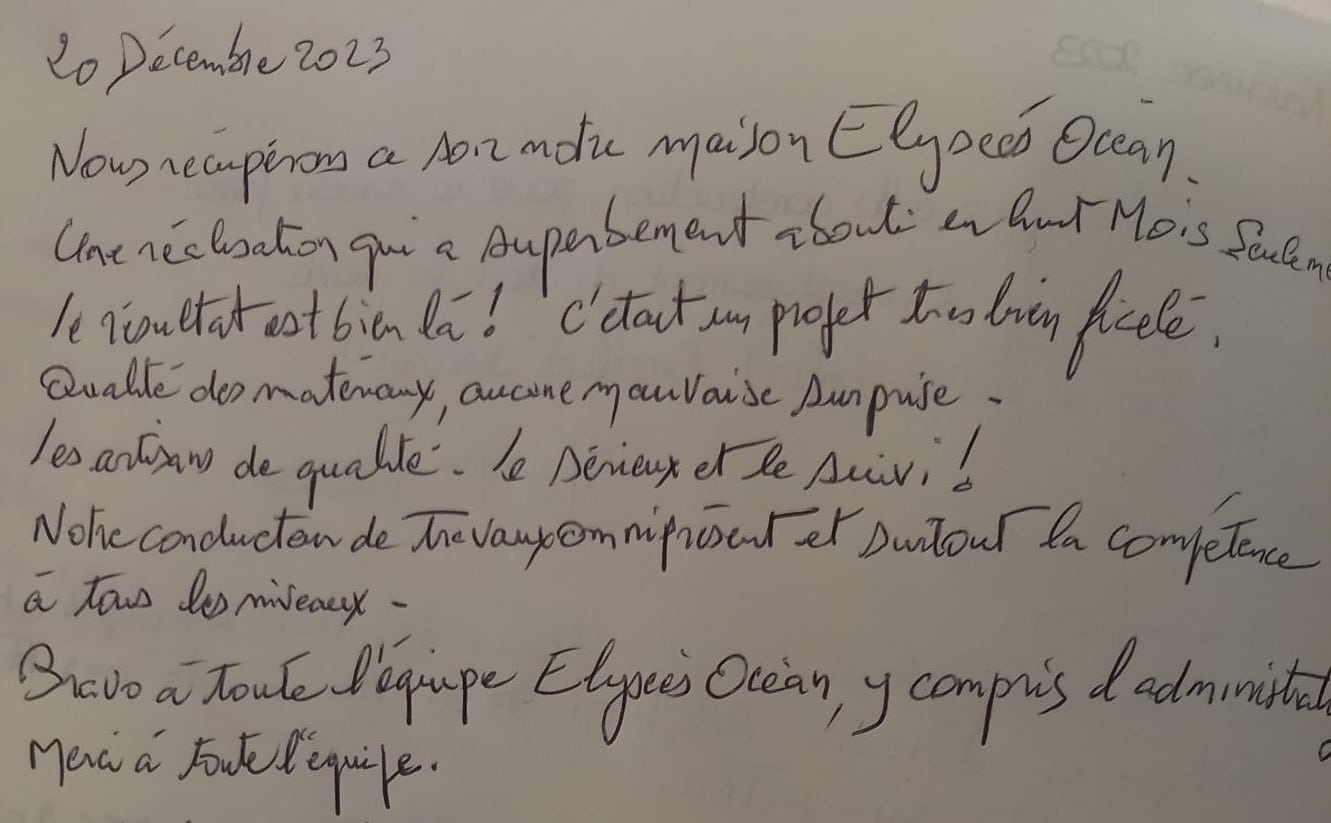 20 Décembre 2023
Nous récupérons ce soir notre maison Elyseés Océan.
Une réalisation qui a superbement abouti en huit Mois Seuleme
le résultat est bien là ! C'était un projet très bien ficelé.
Qualité des matériaux, aucune mauvaise surprise -
les artisans de qualité - le sérieux et le suivi !
Notre conducteur de Travaux omniprésent et surtout la compétence
à tous les niveaux -
Bravo à toute l'équipe Elyseés Océan, y compris l'administrat
Merci à toute l'équipe.